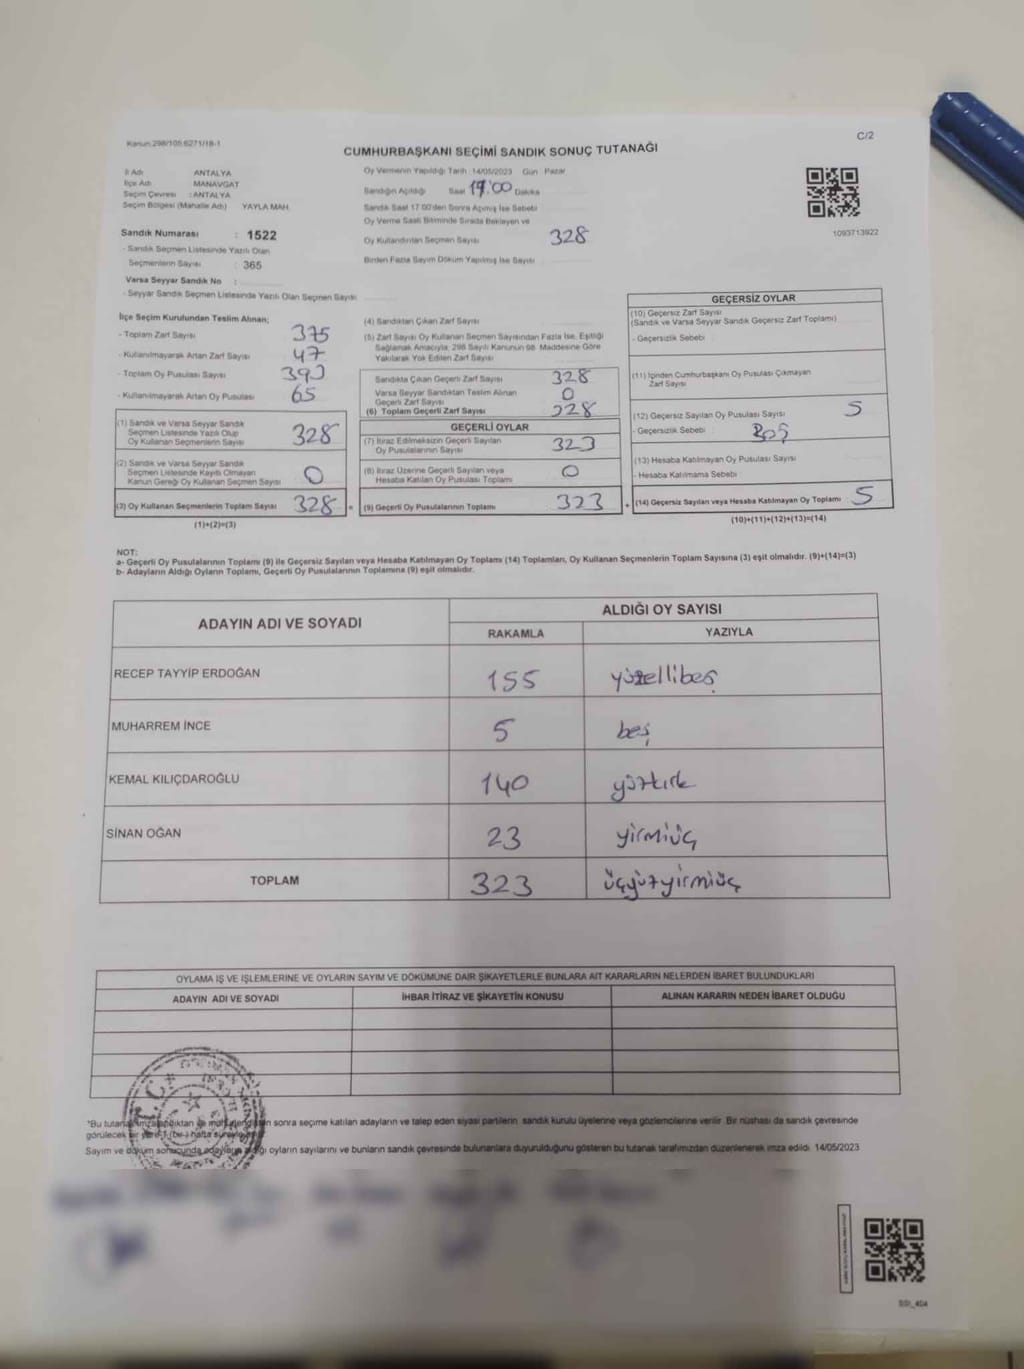 Kanun:298/105,6271/18-1
C/2
CUMHURBAŞKANI SEÇİMİ SANDIK SONUÇ TUTANAĞI
İl Adı ANTALYA
İlçe Adı MANAVGAT
Seçim Çevresi : ANTALYA
Seçim Bölgesi (Mahalle Adı) YAYLA MAH.
Sandık Numarası : 1522
- Sandık Seçmen Listesinde Yazılı Olan
Seçmenlerin Sayısı : 365
Varsa Seyyar Sandık No :
- Seyyar Sandık Seçmen Listesinde Yazılı Olan Seçmen Sayısı
Oy Vermenin Yapıldığı Tarih :14/05/2023 Gün Pazar
Sandığın Açıldığı Saat 17:00 Dakika
Sandık Saat 17.00'den Sonra Açılmış İse Sebebi
Oy Verme Saati Bitiminde Sırada Bekleyen ve
Oy Kullandırılan Seçmen Sayısı 328
Birden Fazla Sayım Döküm Yapılmış İse Sayısı
1093713922
İlçe Seçim Kurulundan Teslim Alınan;
- Toplam Zarf Sayısı 375
- Kullanılmayarak Artan Zarf Sayısı 47
- Toplam Oy Pusulası Sayısı
- Kullanılmayarak Artan Oy Pusulası 65
(1) Sandık ve Varsa Seyyar Sandık
Seçmen Listesinde Yazılı Olup
Oy Kullanan Seçmenlerin Sayısı 328
(2) Sandık ve Varsa Seyyar Sandık
Seçmen Listesinde Kayıtlı Olmayan
Kanun Gereği Oy Kullanan Seçmen Sayısı 0
(3) Oy Kullanan Seçmenlerin Toplam Sayısı 328 =
(1)+(2)=(3)
(4) Sandıktan Çıkan Zarf Sayısı
(5) Zarf Sayısı Oy Kullanan Seçmen Sayısından Fazla İse, Eşitliği
Sağlamak Amacıyla, 298 Sayılı Kanunun 98. Maddesine Göre
Yakılarak Yok Edilen Zarf Sayısı
Sandıkta Çıkan Geçerli Zarf Sayısı 328
Varsa Seyyar Sandıktan Teslim Alınan
Geçerli Zarf Sayısı 0
(6) Toplam Geçerli Zarf Sayısı 328
GEÇERLİ OYLAR
(7) İtiraz Edilmeksizin Geçerli Sayılan
Oy Pusulalarının Sayısı 323
(8) İtiraz Üzerine Geçerli Sayılan veya
Hesaba Katılan Oy Pusulası Toplamı 0
(9) Geçerli Oy Pusulalarının Toplamı 323 +
GEÇERSİZ OYLAR
(10) Geçersiz Zarf Sayısı
(Sandık ve Varsa Seyyar Sandık Geçersiz Zarf Toplamı)
- Geçersizlik Sebebi :
(11) İçinden Cumhurbaşkanı Oy Pusulası Çıkmayan
Zarf Sayısı
(12) Geçersiz Sayılan Oy Pusulası Sayısı 5
- Geçersizlik Sebebi : Boş
(13) Hesaba Katılmayan Oy Pusulası Sayısı
- Hesaba Katılmama Sebebi
(14) Geçersiz Sayılan veya Hesaba Katılmayan Oy Toplamı 5
(10)+(11)+(12)+(13)=(14)
NOT:
a- Geçerli Oy Pusulalarının Toplamı (9) ile Geçersiz Sayılan veya Hesaba Katılmayan Oy Toplamı (14) Toplamları, Oy Kullanan Seçmenlerin Toplam Sayısına (3) eşit olmalıdır. (9)+(14)=(3)
b- Adayların Aldığı Oyların Toplamı, Geçerli Oy Pusulalarının Toplamına (9) eşit olmalıdır.
ADAYIN ADI VE SOYADI
ALDIĞI OY SAYISI
RAKAMLA YAZIYLA
RECEP TAYYİP ERDOĞAN 155 yüzellibeş
MUHARREM İNCE 5 beş
KEMAL KILIÇDAROĞLU 140 yüzkırk
SİNAN OĞAN 23 yirmiüç
TOPLAM 323 üçyüzyirmiüç
OYLAMA İŞ VE İŞLEMLERİNE VE OYLARIN SAYIM VE DÖKÜMÜNE DAİR ŞİKAYETLERLE BUNLARA AİT KARARLARIN NELERDEN İBARET BULUNDUKLARI
ADAYIN ADI VE SOYADI İHBAR İTİRAZ VE ŞİKAYETİN KONUSU ALINAN KARARIN NEDEN İBARET OLDUĞU
T.C.
*Bu sonra seçime katılan adayların ve talep eden siyasi partilerin, sandık kurulu üyelerine veya gözlemcilerine verilir. Bir nüshası da sandık çevresinde
görülecek bir
Sayım ve döküm sonucunda adayların aldığı oyların sayılarını ve bunların sandık çevresinde bulunanlara duyurulduğunu gösteren bu tutanak tarafımızdan düzenlenerek imza edildi. 14/05/2023